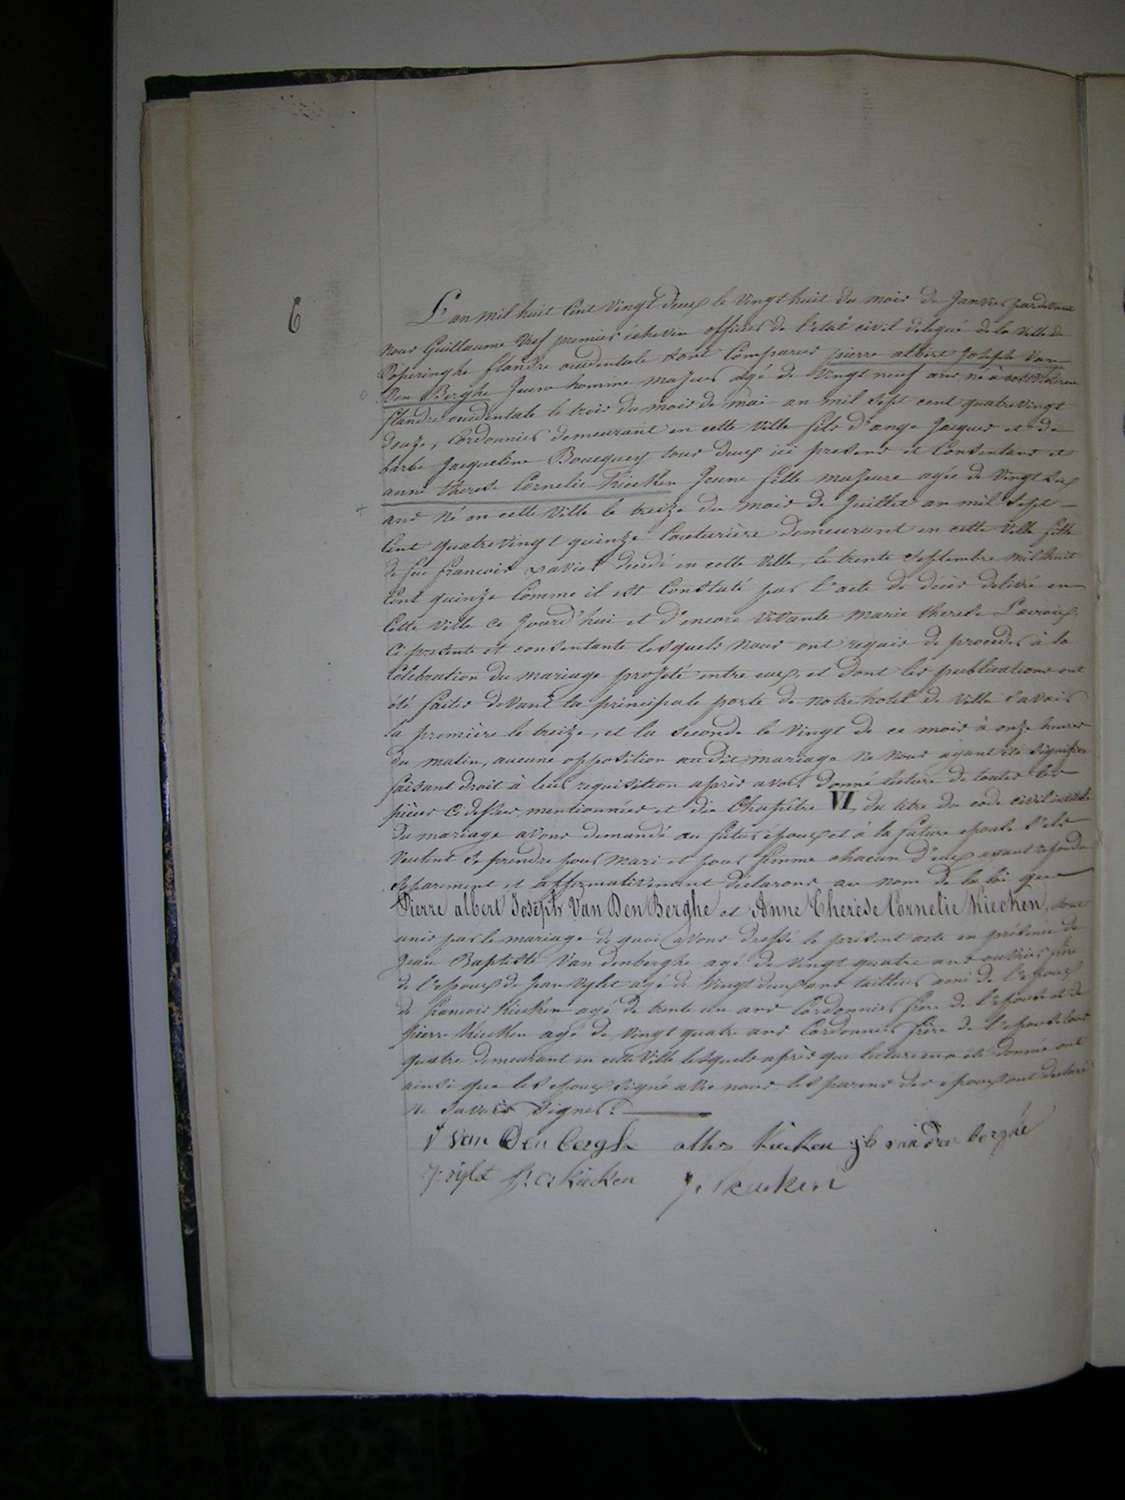 6
L'an mil huit cent vingt deux le vingt huit du mois de Janvier pardevant
nous Guillaume premier échevin officier de l'état civil délégué de la ville de
Poperinghe flandre occidentale sont Comparus pierre albert Joseph Van
Den Berghe Jeune homme majeur agé de vingt neuf ans né à
flandre occidentale le trois du mois de mai an mil sept cent quatre vingt
douze, Cordonnier demeurant en cette ville fils d'ange Jacques et de
barbe Jacqueline Boucquey tous deux ici presens et Consentans et
anne therese Cornelie Kiecken Jeune fille majeure agée de vingt six
ans né en cette ville le treize du mois de Juillet an mil sept
Cent quatre vingt quinze Couturière demeurant en cette ville fille
de feu francois xavier décédé en cette ville, le trente Septembre mil huit
Cent quinze Comme il est Constaté par l'acte de décès délivré en
Cette ville ce Jourd'hui et d'encore vivante marie therese Lacroix
Ci presente et consentante lesquels nous ont requis de proceder à la
Célébration du mariage projeté entre eux, et dont les publications ont
été faites devant la principale porte de notre hotel de ville savoir
la première le treize, et la seconde le vingt de ce mois à onze heures
du matin, aucune opposition au dit mariage ne nous ayant été signifiée
faisant droit à leur requisition après avoir donné lecture de toutes les
pièces ci dessus mentionnées et du Chapitre VI, du titre du code civil intitulé
du mariage avons demandé au futur époux et à la future epouse s'ils
veulent se prendre pour mari et pour femme chacun d'eux ayant repondu
séparement et affirmativement déclarons au nom de la loi que
Pierre albert Joseph Van Den Berghe et Anne Therèse Cornelie Kiecken, sont
unis par le mariage de quoi avons dressé le présent acte en présence de
Jean Baptiste Vandenberghe agé de vingt quatre ans ouvrier frère
de l'epoux de Jean Ryhet agé de vingt deux ans tailleur ami de l'epoux
de francois Kiecken agé de trente un ans Cordonnier frère de l'epouse et de
pierre Kiecken agé de vingt quatre ans Cordonnier frère de l'epouse tous
quatre demeurant en cette ville lesquels après que lecture en a été donnée ont
ainsi que les epoux signé avec nous les parens des epoux ont declaré
ne savoir signer.
Van Den bergh Kiecken jb van den berghe
Kiecken